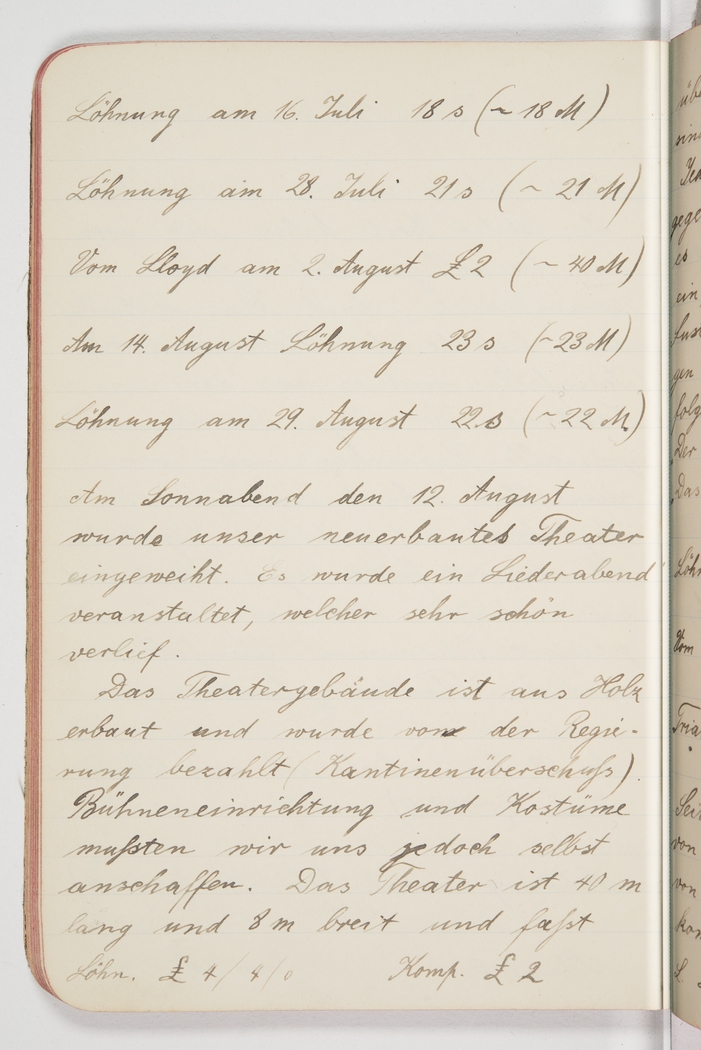 Löhnung am 16. Juli 18 s (~ 18 M)
Löhnung am 28. Juli 21 s (~ 21 M)
Vom Lloyd am 2. August £ 2 (~ 40 M)
Am 14. August Löhnung 23 s (~ 23 M)
Löhnung am 29. August 22 s (~ 22 M)
Am Sonnabend den 12. August
wurde unser neuerbautes Theater
eingeweiht. Es wurde ein Liederabend
veranstaltet, welcher sehr schön
verlief.
Das Theatergebäude ist aus Holz
erbaut und wurde von der Regie-
rung bezahlt (Kantinenüberschuß).
Bühneneinrichtung und Kostüme
mußten wir uns jedoch selbst
anschaffen. Das Theater ist 40 m
lang und 8 m breit und faßt
Löhn. £ 4/4/0 Komp. £ 2